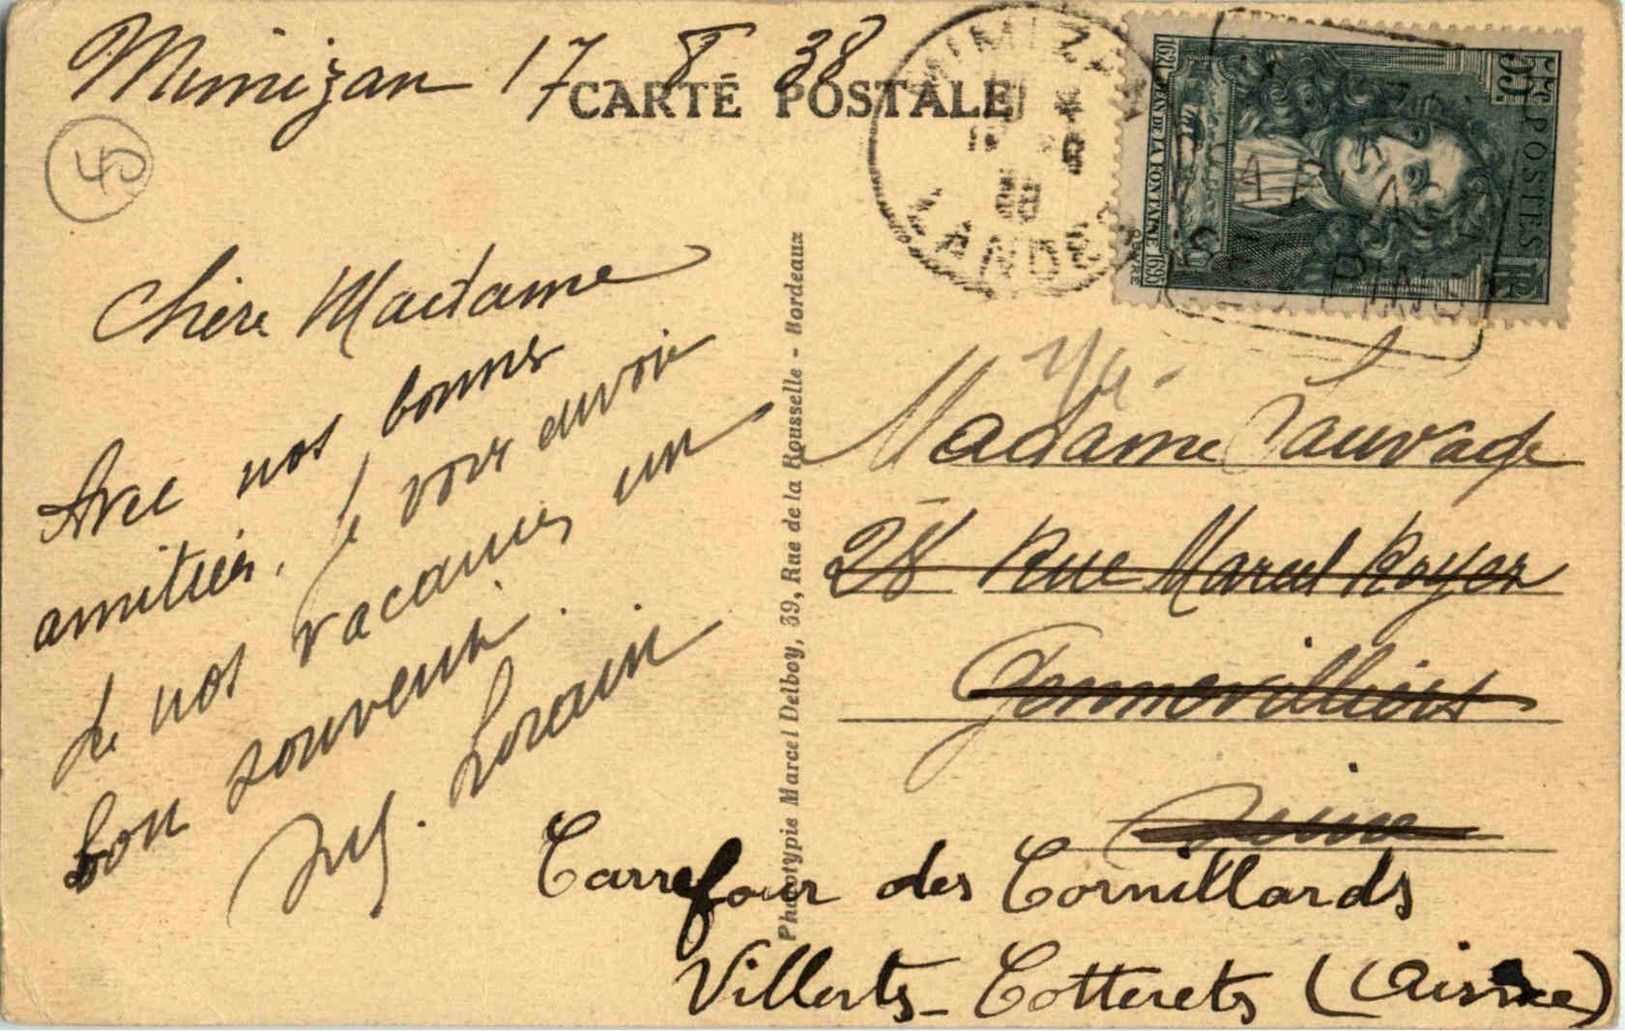 Mimizan 17 8 38
CARTE POSTALE
40
MIMIZ
LANDES
55c POSTES RF
1621 JEAN DE LA FONTAINE 1695
PINS
Chère Madame
Avec nos bonnes
amitiés, je vous envoie
de nos vacances un
bon souvenir.
Lorain
Phototypie Marcel Delboy, 39, Rue de la Rousselle - Bordeaux
Madame Sauvage
28 Rue Marcel Royer
Gennevilliers
Seine
Carrefour des Cornillards
Villerts-Cotterets (Aisne)